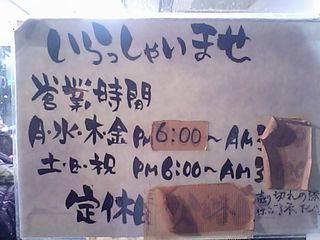 いらっしゃいませ
営業時間
月・水・木・金 PM 6:00～AM
土・日・祝 PM 6:00～AM 3
定休
売り切れの際